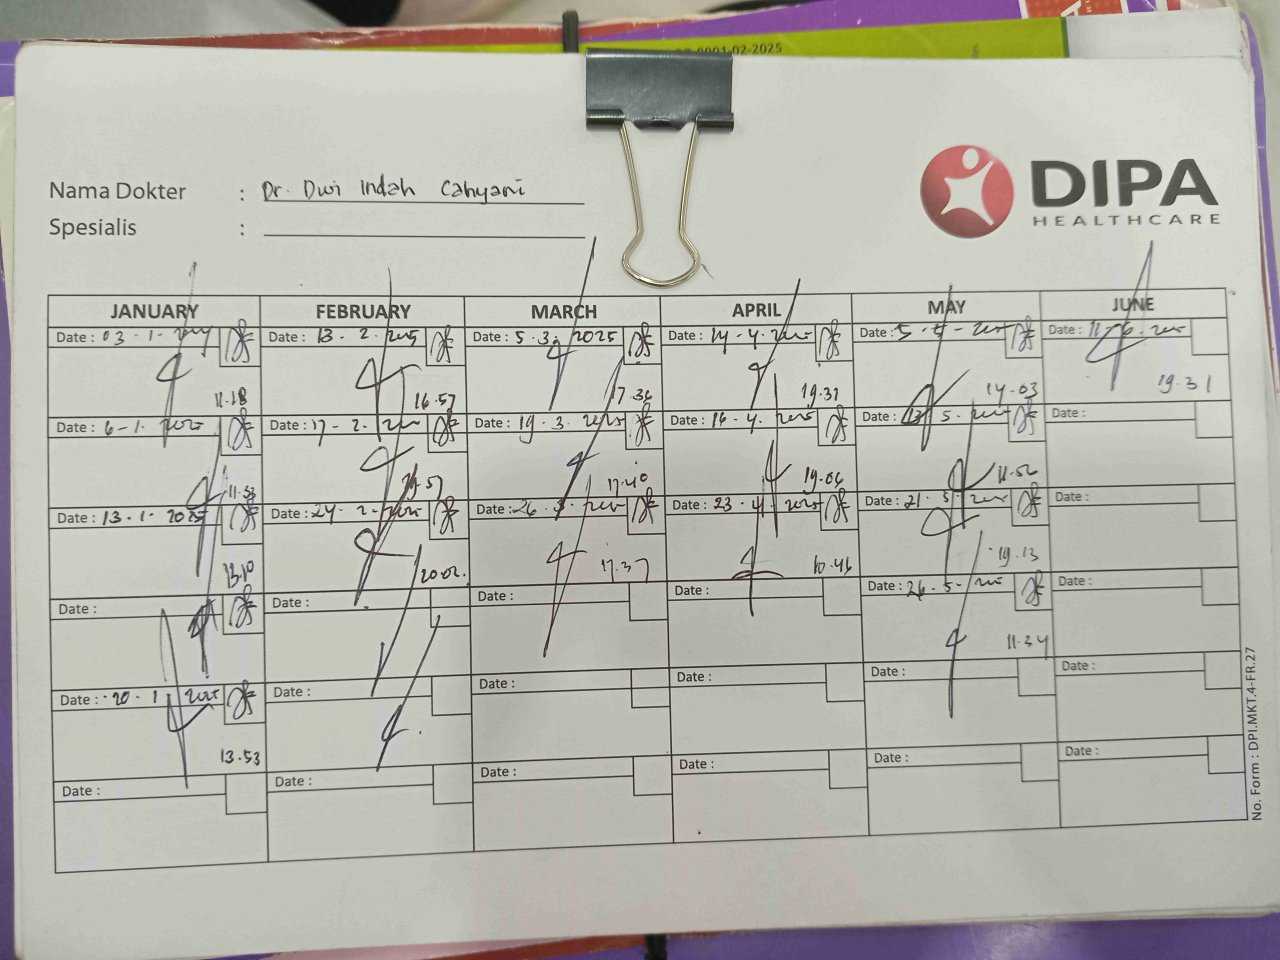 0001-02-2025
Nama Dokter : Dr. Dwi Indah Cahyani
Spesialis :
DIPA
HEALTHCARE
JANUARY FEBRUARY MARCH APRIL MAY JUNE
Date : 03 - 1 - Date : 13 - 2 - 2025 Date : 5 - 3 - 2025 Date : 14 - 4 - 2025 Date : 5 - 5 - 2025 Date : 11 - 6 - 2025
11.18 16.57 17.36 19.31 14.03 19.31
Date : 6 - 1 - 2025 Date : 17 - 2 - 2025 Date : 19 - 3 - 2025 Date : 16 - 4 - 2025 Date : 13 - 5 - 2025 Date :
11.53 19.57 17.40 19.06 11.56
Date : 13 - 1 - 2025 Date : 24 - 2 - 2025 Date : 26 - 3 - 2025 Date : 23 - 4 - 2025 Date : 21 - 5 - 2025 Date :
13.10 20.02. 17.37 10.46 19.13
Date : Date : Date : Date : Date : 26 - 5 - 2025 Date :
11.34
Date : 20 - 1 - 2025 Date : Date : Date : Date : Date :
13.53
Date : Date : Date : Date : Date : Date :
No. Form : DPI.MKT.4-FR.27